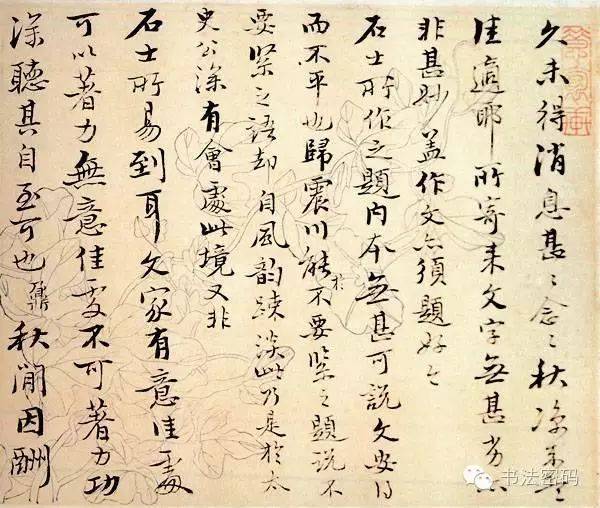 久未得消息甚〻念〻秋凉想
佳適耶所寄来文字無甚劣亦
非甚妙蓋作文亦須題好今
石士所作之題内本無甚可說文安得
而不平也歸震川能於不要緊之題說不
要緊之語却自風韵疎淡此乃是於太
史公深有會處此境又非
石士所易到耳文家有意佳處
可以著力無意佳處不可著力功
深聽其自至可也鼐秋間因酬
书法密码